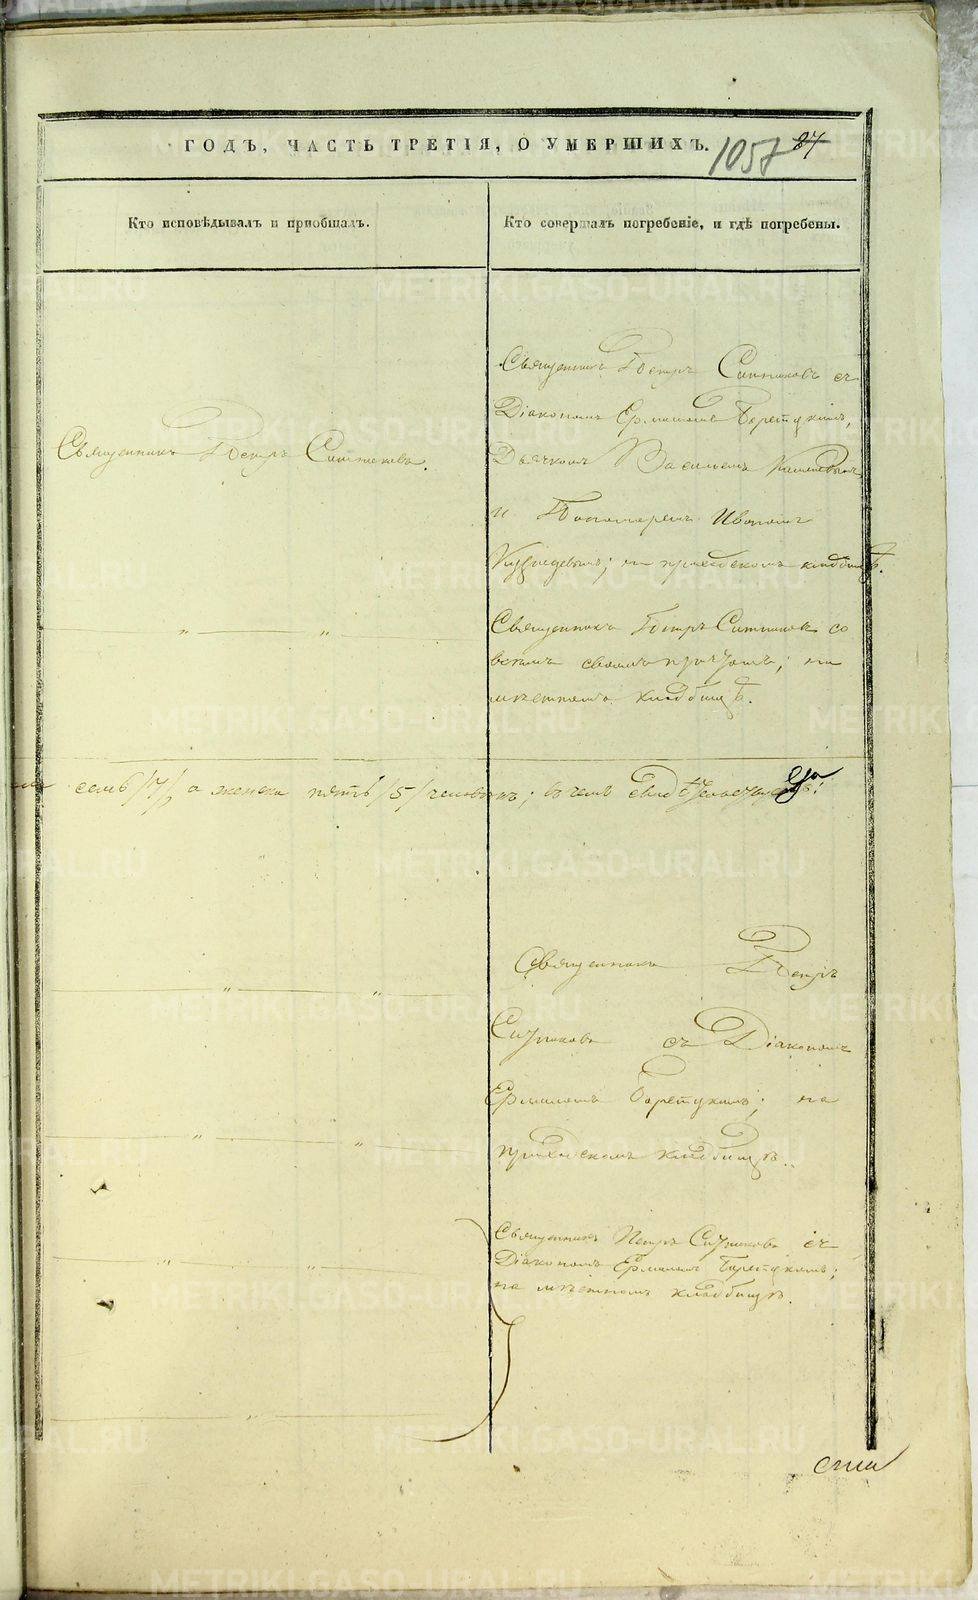 ГОДЪ, ЧАСТЬ ТРЕТІЯ, О УМЕРШИХЪ.
1057 84
Кто исповѣдывалъ и приобщалъ.
Кто совершалъ погребеніе, и гдѣ погребены.
Священникъ Петръ Ситниковъ съ
Діакономъ Ермиломъ
Священникъ Петръ Ситниковъ.
Дьячкомъ Васильемъ
и Пономаремъ Иваномъ
Кузнецовымъ; на приходскомъ кладбищѣ.
Священникъ Петръ Ситниковъ со
всемъ своимъ причтомъ; на
мѣстномъ кладбищѣ.
семь /7/, а женска пять /5/ человекъ; въ чемъ свидѣтельствуемъ:
Священникъ Петръ
Ситниковъ съ Діакономъ
Ермиломъ на
приходскомъ кладбищѣ.
Священникъ Петръ Ситниковъ съ
Діакономъ Ермиломъ
на мѣстномъ кладбищѣ.
METRIKI.GASO-URAL.RU